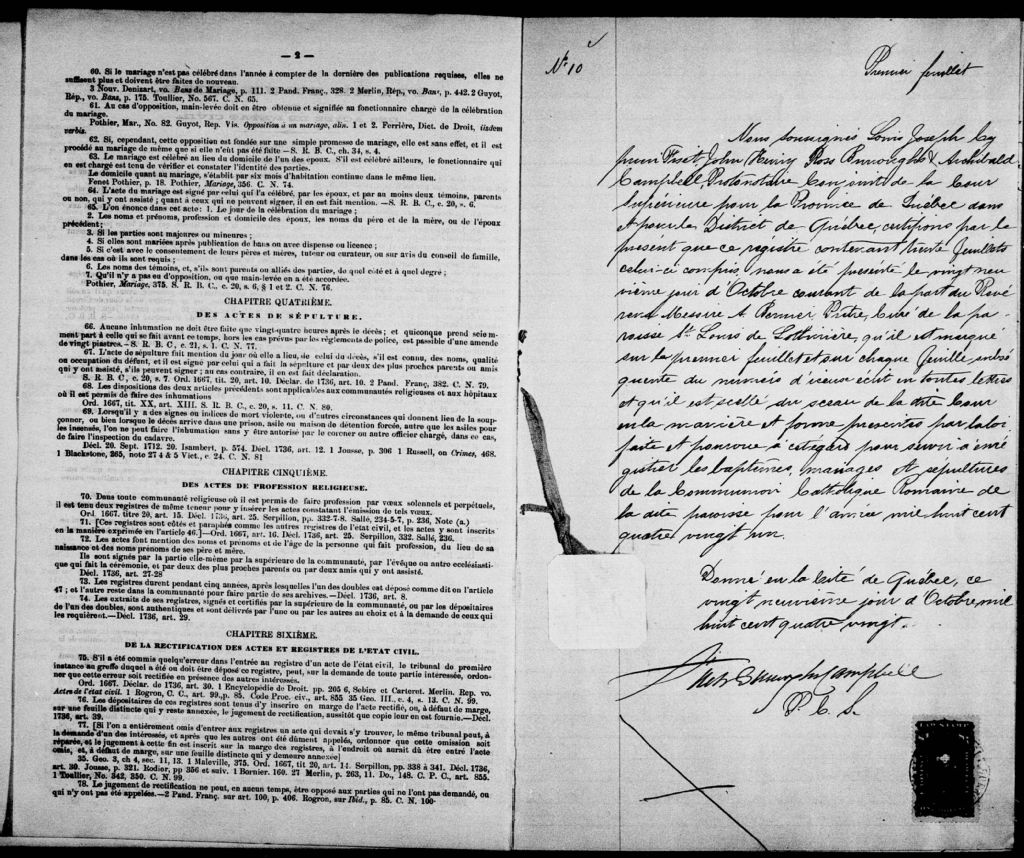 — 2 —
60. Si le mariage n'est pas célébré dans l'année à compter de la dernière des publications requises, elles ne
suffisent plus et doivent être faites de nouveau.
3 Nouv. Denizart, vo. Bans de Mariage, p. 111. 2 Pand. Franç., 328. 2 Merlin, Rép., vo. Bans, p. 442. 2 Guyot,
Rép., vo. Bans, p. 175. Toullier, No. 567. C. N. 65.
61. Au cas d'opposition, main-levée doit en être obtenue et signifiée au fonctionnaire chargé de la célébration
du mariage.
Pothier, Mar., No. 82. Guyot, Rep. Vis. Opposition à un mariage, alin. 1 et 2. Ferrière, Dict. de Droit, iisdem
verbis.
62. Si, cependant, cette opposition est fondée sur une simple promesse de mariage, elle est sans effet, et il est
procédé au mariage de même que si elle n'eût pas été faite —S. R. B. C., ch. 34, s. 4.
63. Le mariage est célébré au lieu du domicile de l'un des époux. S'il est célébré ailleurs, le fonctionnaire qui
en est chargé est tenu de vérifier et constater l'identité des parties.
Le domicile quant au mariage, s'établit par six mois d'habitation continue dans le même lieu.
Fenet Pothier, p. 18. Pothier, Mariage, 356. C. N. 74.
64. L'acte du mariage est signé par celui qui l'a célébré, par les époux, et par au moins deux témoins, parents
ou non, qui y ont assisté; quant à ceux qui ne peuvent signer, il en est fait mention.—S. R. B. C., c. 20, s. 6.
65. L'on énonce dans cet acte: 1. Le jour de la célébration du mariage;
2. Les noms et prénoms, profession et domicile des époux, les noms du père et de la mère, ou de l'époux
précédent;
3. Si les parties sont majeures ou mineures;
4. Si elles sont mariées après publication de bans ou avec dispense ou licence;
5. Si c'est avec le consentement de leurs pères et mères, tuteur ou curateur, ou sur avis du conseil de famille,
dans les cas où ils sont requis;
6. Les noms des témoins, et, s'ils sont parents ou alliés des parties, de quel côté et à quel degré;
7. Qu'il n'y a pas eu d'opposition, ou que main-levée en a été accordée.
Pothier, Mariage, 375. S. R. B. C., c. 20, s. 6, § 1 et 2. C. N. 76.
CHAPITRE QUATRIÈME.
DES ACTES DE SÉPULTURE.
66. Aucune inhumation ne doit être faite que vingt-quatre heures après le décès; et quiconque prend sciem-
ment part à celle qui se fait avant ce temps, hors les cas prévus par les règlements de police, est passible d'une amende
de vingt piastres.—S. R. B. C., c. 21, s. 1. C. N. 77.
67. L'acte de sépulture fait mention du jour où elle a lieu, de celui du décès, s'il est connu, des noms, qualité
ou occupation du défunt, et il est signé par celui qui a fait la sépulture et par deux des plus proches parents ou amis
qui y ont assisté, s'ils peuvent signer; au cas contraire, il en est fait déclaration.
S. R. B. C., c. 20, s. 7. Ord. 1667, tit. 20, art. 10. Déclar. de 1736, art. 10. 2 Pand. Franç, 382. C. N. 79.
68. Les dispositions des deux articles précédents sont applicables aux communautés religieuses et aux hôpitaux
où il est permis de faire des inhumations
Ord. 1667, tit. XX, art. XIII. S. R. B. C., c. 20, s. 11. C. N. 80.
69. Lorsqu'il y a des signes ou indices de mort violente, ou d'autres circonstances qui donnent lieu de la soup-
çonner, ou bien lorsque le décès arrive dans une prison, asile ou maison de détention forcée, autre que les asiles pour
les insensés, l'on ne peut faire l'inhumation sans y être autorisé par le coroner ou autre officier chargé, dans ce cas,
de faire l'inspection du cadavre.
Décl. 20. Sept. 1712. 20. Isambert, p. 574. Décl. 1736, art. 12. 1 Jousse, p. 306 1 Russell, on Crimes, 468.
1 Blackstone, 265, note 27 4 & 5 Vict., c. 24. C. N. 81
CHAPITRE CINQUIÈME.
DES ACTES DE PROFESSION RELIGIEUSE.
70. Dans toute communauté religieuse où il est permis de faire profession par vœux solennels et perpétuels,
il est tenu deux registres de même teneur pour y insérer les actes constatant l'émission de tels vœux.
Ord. 1667. titre 20, art. 15. Décl. 1736, art. 25. Serpillon, pp. 337-7-8. Sallé, 234-5-7, p. 236, Note (a.)
71. [Ces registres sont côtés et paraphés comme les autres registres de l'état civil, et les actes y sont inscrits
en la manière exprimée en l'article 46.]—Ord. 1667, art. 16. Décl. 1736, art. 25. Serpillon, 332. Sallé, 236.
72. Les actes font mention des noms et prénoms et de l'âge de la personne qui fait profession, du lieu de sa
naissance et des noms prénoms de ses père et mère.
Ils sont signés par la partie elle-même par la supérieure de la communauté, par l'évêque ou autre ecclésiasti-
que qui fait la cérémonie, et par deux des plus proches parents ou par deux amis qui y ont assisté.
Décl. 1736, art. 27-28
73. Les registres durent pendant cinq années, après lesquelles l'un des doubles est déposé comme dit en l'article
47; et l'autre reste dans la communauté pour faire partie de ses archives.—Décl. 1736, art. 8.
74. Les extraits de ses registres, signés et certifiés par la supérieure de la communauté, ou par les dépositaires
de l'un des doubles, sont authentiques et sont délivrés par l'une ou par les autres au choix et à la demande de ceux qui
les requièrent.—Décl. 1736, art. 29.
CHAPITRE SIXIÈME.
DE LA RECTIFICATION DES ACTES ET REGISTRES DE L'ETAT CIVIL.
75. S'il a été commis quelqu'erreur dans l'entrée au registre d'un acte de l'état civil, le tribunal de première
instance au greffe duquel a été ou doit être déposé ce registre, peut, sur la demande de toute partie intéressée, ordon-
ner que cette erreur soit rectifiée en présence des autres intéressés.
Ord. 1667. Déclar. de 1736, art. 30. 1 Encyclopédie de Droit. pp. 205 6, Sebire et Carteret. Merlin. Rep. vo.
Actes de l'état civil. 1 Rogron, C. C., art. 99., p. 85. Code Proc. civ., art. 855 35 Geo. III., c. 4, s. 13. C. N. 99.
76. Les dépositaires de ces registres sont tenus d'y inscrire en marge de l'acte rectifié, ou, à défaut de marge,
sur une feuille distincte qui y reste annexée, le jugement de rectification, aussitôt que copie leur en est fournie.—Décl.
1736, art. 39.
77. [Si l'on a entièrement omis d'entrer aux registres un acte qui devait s'y trouver, le même tribunal peut, à
la demande d'un des intéressés, et après que les autres ont été dûment appelés, ordonner que cette omission soit
réparée, et le jugement à cette fin est inscrit sur la marge des registres, à l'endroit où aurait dû être entré l'acte
omis, et, à défaut de marge, sur une feuille distincte qui y demeure annexée]
35. Geo. 3, ch 4, sec. 11, 13. 1 Maleville, 375. Ord. 1667, tit 20, art. 14. Serpillon, pp. 338 à 341. Décl. 1736,
art. 30. Jousse, p. 321. Rodier, pp 356 et suiv. 1 Bornier. 160. 27 Merlin, p. 263, 11. Do., 148. C. P. C., art. 855.
1 Toullier, No. 342, 350. C. N. 99.
78. Le jugement de rectification ne peut, en aucun temps, être opposé aux parties qui ne l'ont pas demandé, ou
qui n'y ont pas été appelées.—2 Pand. Franç. sur art. 100, p. 406. Rogron, sur Ibid., p. 85. C. N. 100
No 10
Premier feuillet
Nous soussignés Louis Joseph Cy
prien Fiset, John Henry Ross Burroughs & Archibald
Campbell, Protonotaire Conjoint de la Cour
Supérieure pour la Province de Québec dans
et pour le District de Québec, certifions par le
présent que ce registre contenant trente feuillets
celui-ci compris, nous a été présenté le vingt neu
vième jour d'Octobre courant de la part du Révé
rend Messire A Bernier Prêtre, Curé de la pa-
roisse St. Louis de Lotbinière, qu'il est marqué
sur le premier feuillet et sur chaque feuille subsé
quente du numéro d'iceux écrit en toutes lettres
et qu'il est scellé du sceau de la dite Cour
en la manière et forme prescrites par la loi
faite et pourvue à cet égard pour servir à enré
gistrer les baptêmes, mariages et sépultures
de la Communion Catholique Romaine de
la dite paroisse pour l'année mil huit cent
quatre vingt un.
Donné en la Cité de Québec, ce
vingt neuvième jour d'Octobre mil
huit cent quatre vingt.
Fiset Burroughs Campbell
P. C. S.